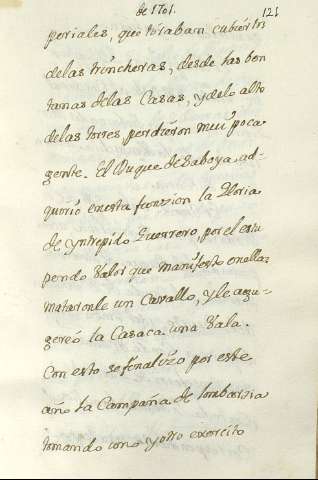 de 1701. 121
periales, que tiraban cubiertos
de las trincheras, desde las ben
tanas de las Casas, y de lo alto
de las torres, perdieron mui poca
gente. El Duque de Saboya ad-
quirio en esta funzion la Gloria
de yntrepido Guerrero, por el estu
pendo Valor que manifesto en ella:
mataronle un Cavallo, y le agu-
gereó la Casaca una Vala.
Con esto se finalizo por este
año la Campaña de lombardia
tomando uno y otro exercito